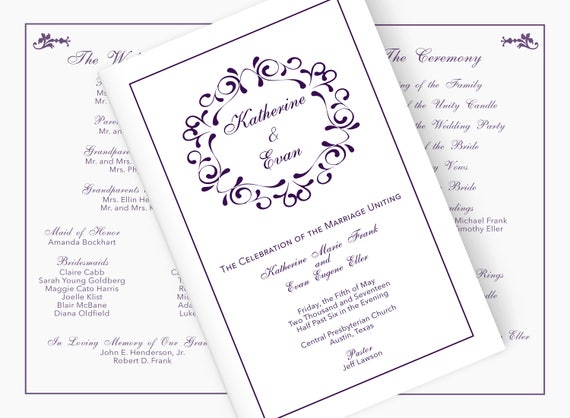 The
Mr.
Mr.
Grandparents
Mr. and Mrs.
Mr. and Mrs.
Grandparents
Mrs. Ellin
Mr. and
Maid of Honor
Amanda Bockhart
Bridesmaids
Claire Cabb
Sarah Young Goldberg
Maggie Cato Harris
Joelle Klist
Blair McBane
Diana Oldfield
In Loving Memory of Our
John E. Henderson, Jr.
Robert D. Frank
Katherine
&
Evan
The Celebration of the Marriage Uniting
Katherine Marie Frank
and
Evan Eugene Eller
Friday, the Fifth of May
Two Thousand and Seventeen
Half Past Six in the Evening
Central Presbyterian Church
Austin, Texas
Pastor
Jeff Lawson
The Ceremony
of the Family
of the Unity Candle
the Wedding Party
Vows
the Bride
Michael Frank
Timothy Everett
Rings
the Bride
Eller